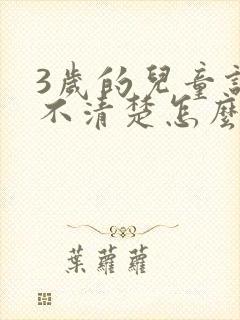 3歲的兒童
不清楚怎麼
葉蘿蘿